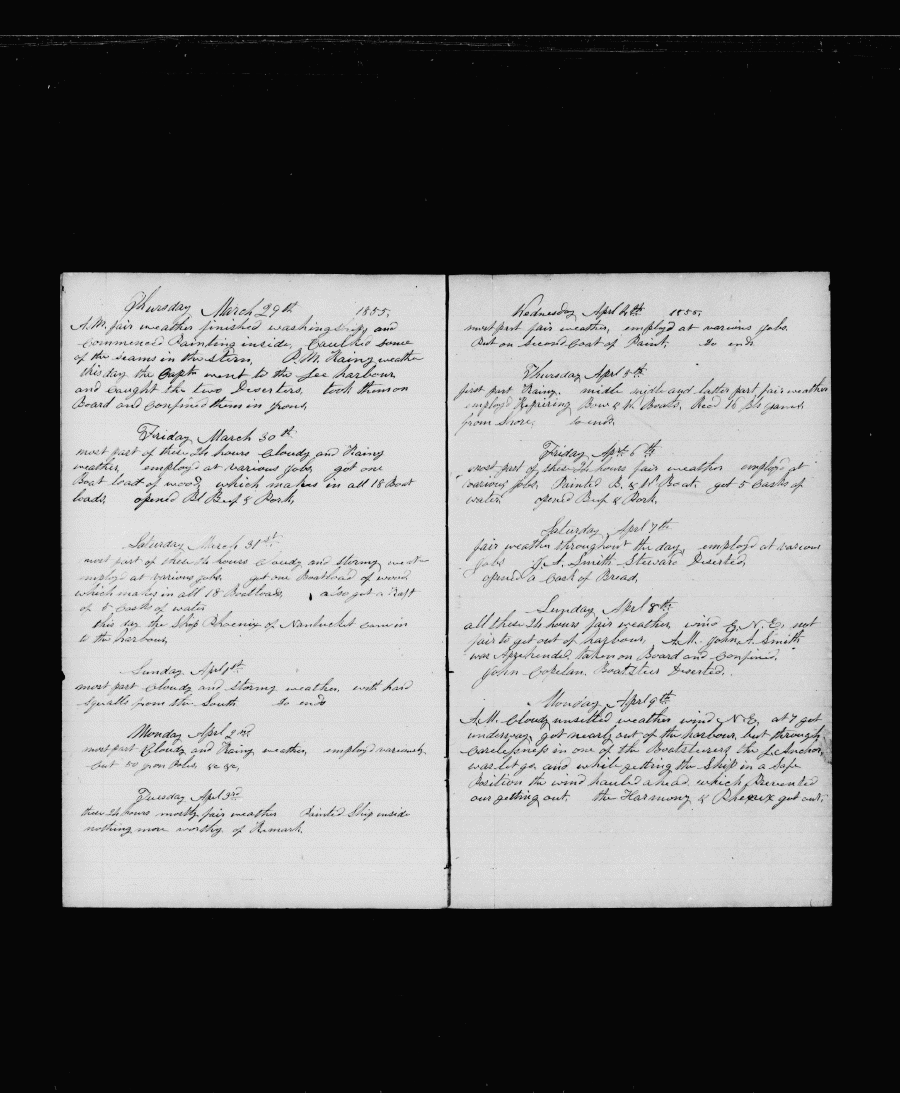 Thursday March 29th 1855,
A.M. fair weather finished washing Ship and
Commenced Painting inside, Caulked some
of the seams in the stern, P.M. Rainy weather
this day the Captn went to the Lee harbour
and Caught the two Deserters, took them on
Board and Confined them in Irons,
Friday March 30th
most part of these 24 hours Cloudy and Rainy
weather, employd at various Jobs, got one
Boat load of wood which makes in all 18 Boat
loads, opened Bl Beef & Pork,
Saturday March 31st
most part of these 24 hours Cloudy and Stormy weather
employd at various jobs, got one Boatload of wood
which makes in all 18 Boatloads, also got a Raft
of 8 Casks of water
this day the Ship Phoenix of Nantucket Came in
to the harbour,
Sunday Aprl 1st
most part Cloudy and Stormy weather, with hard
Squalls from the South So ends
Monday Aprl 2nd
most part Cloudy and Rainy weather, employd variously
Cut 50 Iron Poles, &c &c,
Tuesday Aprl 3rd
these 24 hours mostly fair weather Painted Ship inside
nothing more worthy of Remark,
Wednesday Aprl 4th 1855,
most part fair weather, employd at various jobs.
Put on Second Coat of Paint, So ends
Thursday Aprl 5th
first part Rainy, midle midle and latter part fair weather
employd Repairing Bow & W. Boats, Recd 16 Bls
from Shore, So ends,
Friday Aprl 6th
most part of these 24 hours fair weather employd at
various Jobs, Painted B. & W. Boat, got 5 Casks of
water opened Beef & Pork,
Saturday Aprl 7th
fair weather throughout the day, employd at various
jobs J. A. Smith Steward Deserted,
opened a Cask of Bread,
Sunday Aprl 8th
all these 24 hours fair weather, wind E.N.E, not
fair to get out of harbour, A.M. John A. Smith
was Apprehended, taken on Board and Confined,
John Copelan Boatsteer Deserted,
Monday Aprl 9th
A.M. Cloudy unsettled weather, wind N.E, at 7 got
underway, got nearly out of the harbour, but through
Carelessness in one of the Boatsteerers, the L. Anchor,
was let go, and while getting the Ship in a Safe
Position the wind hauled ahead, which Prevented
our getting out, the Harmony & Phenix got out,